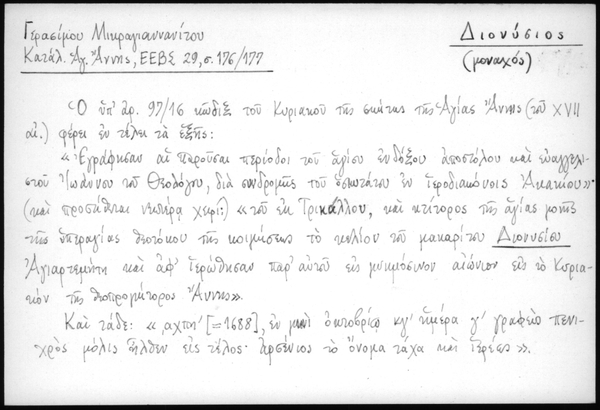 Γερασίμου Μικραγιαννανίτου
Κατάλ. Ἁγ. Ἄννης, ΕΕΒΣ 29, σ. 176/177
Διονύσιος
(μοναχός)
Ὁ ὑπ' ἀρ. 97/16 κῶδιξ τοῦ Κυριακοῦ τῆς σκήτης τῆς Ἁγίας Ἄννης (τοῦ XVII
αἰ.) φέρει ἐν τέλει τὰ ἑξῆς:
«Ἐγράφησαν αἱ παροῦσαι περίοδοι τοῦ ἁγίου ἐνδόξου ἀποστόλου καὶ εὐαγγελι-
στοῦ Ἰωάννου τοῦ Θεολόγου, διὰ συνδρομῆς τοῦ ὁσιωτάτου ἐν ἱεροδιακόνοις Ἀκακίου»·
(καὶ προσθῆται νεωτέρᾳ χειρί:) «τοῦ ἐκ Τρικάλλου, καὶ κτίτορος τῆς ἁγίας μονῆς
τῆς ὑπεραγίας θεοτόκου τῆς κοιμήσεως τὸ κελίον τοῦ μακαρίτου Διονυσίου
Ἁγιαρτεμήτη καὶ ἀφ' ἱερώθησαν παρ' αὐτοῦ εἰς μνημόσινον αἰώνιον εἰς τὸ Κυρια-
κὸν τῆς θεοπρομήτορος Ἄννης».
Καὶ τάδε: «͵αχπη' [=1688], ἐν μηνὶ ὀκτοβρίῳ κγ' ἡμέρα γ' γραφεῖο πενι-
χρὸς μόλις ἦλθεν εἰς τέλος· ἀρσένιος τὸ ὄνομα τάχα καὶ ἱερεύς».